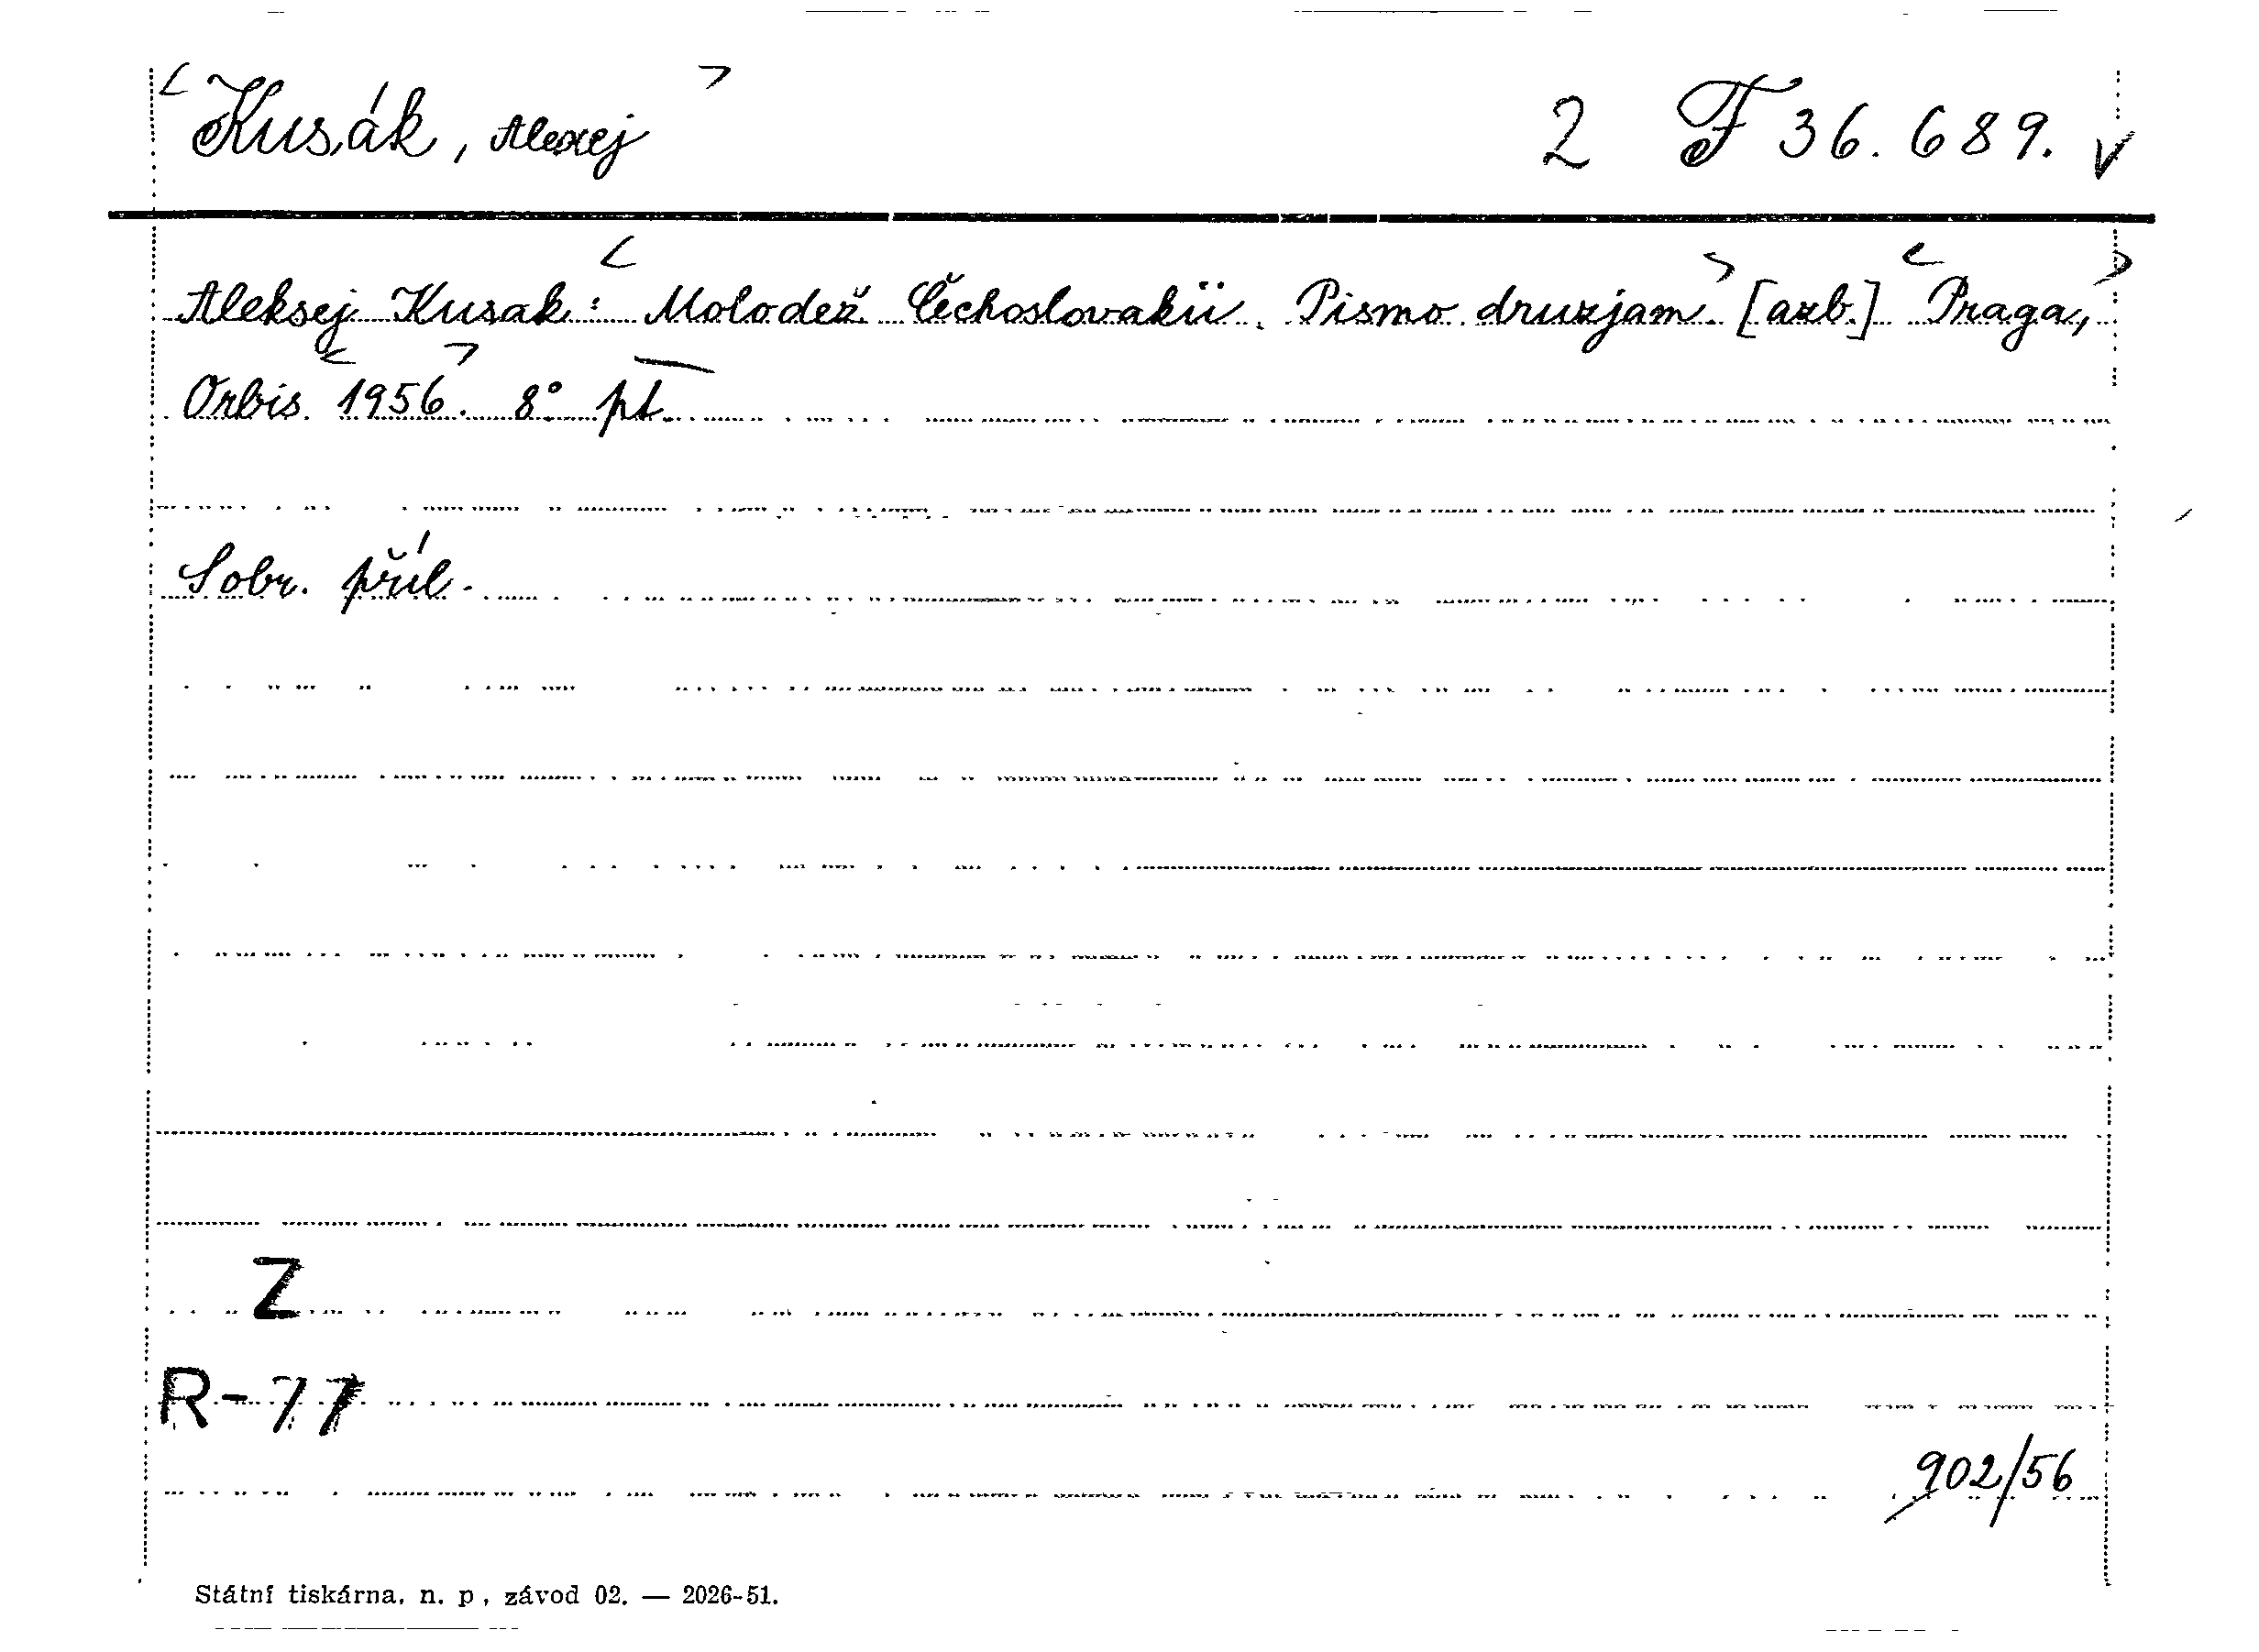 < Kusák, Alexej > 2 F 36.689. v
Aleksej Kusak: < Molodež Čechoslovakii. Pismo druzjam. > [azb.] < Praga, >
Orbis < 1956 >. 8° pt
Sobr. příl.
Z
R-77
902/56
Státní tiskárna, n. p., závod 02. — 2026-51.